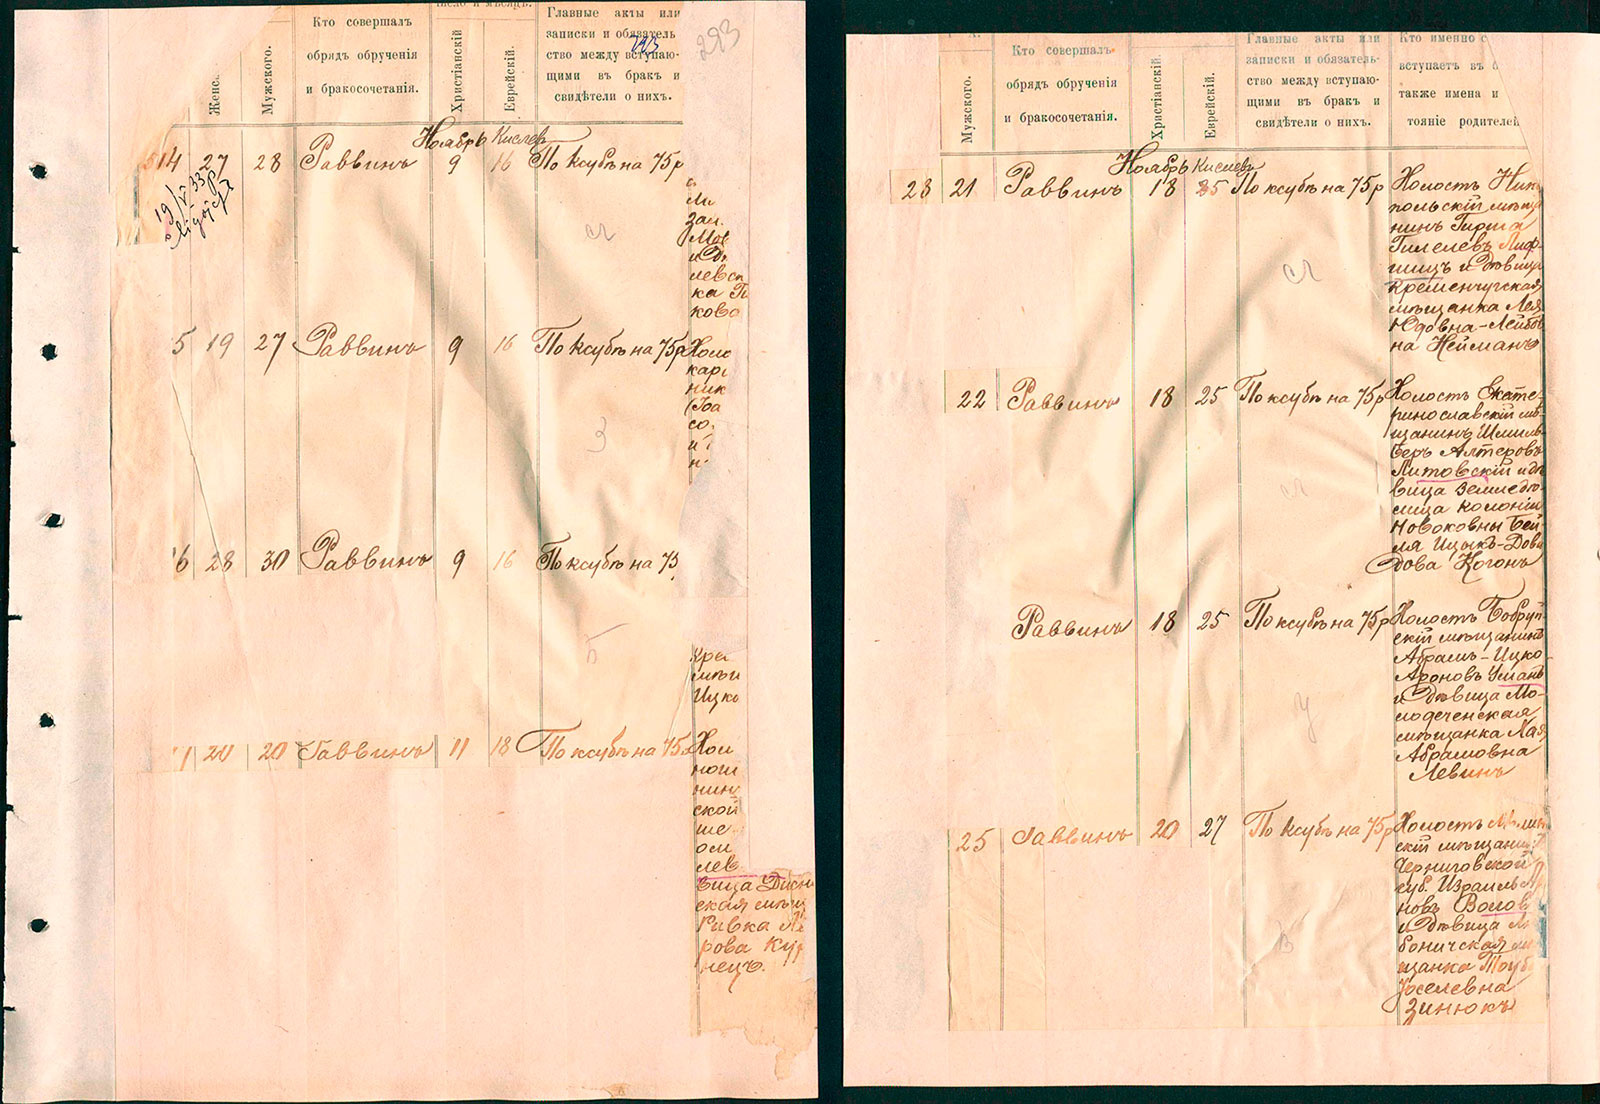 Женс
Мужского.
Кто совершалъ
обрядъ обрученія
и бракосочетанія.
Число и мѣсяцъ.
Христіанскій
Еврейскій.
Главные акты или
записки и обязатель
ство между вступаю-
щими въ бракъ и
свидѣтели о нихъ.
293
Ноябрь Кислевъ
514 27 28 Раввинъ 9 16 По ксубѣ на 75 р
Зап.
Мов
левск
ка
кова
5 19 27 Раввинъ 9 16 По ксубѣ на 75 р Холо
кар
ник
со.
и
н
6 28 30 Раввинъ 9 16 По ксубѣ на 75
Кре
мѣщ
Ицко
20 Раввинъ 11 18 По ксубѣ на 75 Хол
ской
ше
лев
вица Дисн
ская мѣщ
Ривка
рова Кур
нецъ.
Мужского.
Кто совершалъ
обрядъ обрученія
и бракосочетанія.
Христіанскій.
Еврейскій.
Главные акты или
записки и обязатель-
ство между вступаю-
щими въ бракъ и
свидѣтели о нихъ.
Кто именно с
вступаетъ въ
также имена и
тояніе родителей
Ноябрь Кислевъ
23 21 Раввинъ 18 25 По ксубѣ на 75 р Холостъ Нико
польскій мѣща
нинъ Гирша
Гилелевъ Лиф-
шицъ и дѣвица
Кременчугская
мѣщанка Лея
Юдовна-Лейбов
на Нейманъ
22 Раввинъ 18 25 По ксубѣ на 75 р Холостъ Екате-
ринославскій мѣ-
щанинъ Шмиль-
Беръ Алтеровъ
Литовскій и дѣ
вица земледѣ-
лица колоніи
Новоковны Бей-
ля Ицыкъ-Дови
дова Когонъ
Раввинъ 18 25 По ксубѣ на 75 р Холостъ Бобруй-
скій мѣщанинъ
Абрамъ-Ицко
Ароновъ Уманъ
и дѣвица Мо-
лодеченская
мѣщанка Хая
Абрамовна
Левинъ
25 Раввинъ 20 27 По ксубѣ на 75 р Холостъ Мглин
скій мѣщанинъ
Черниговской
губ. Израиль
новъ Волов
и дѣвица
боничская
щанка Тауб
Іоселевна
Зинюкъ